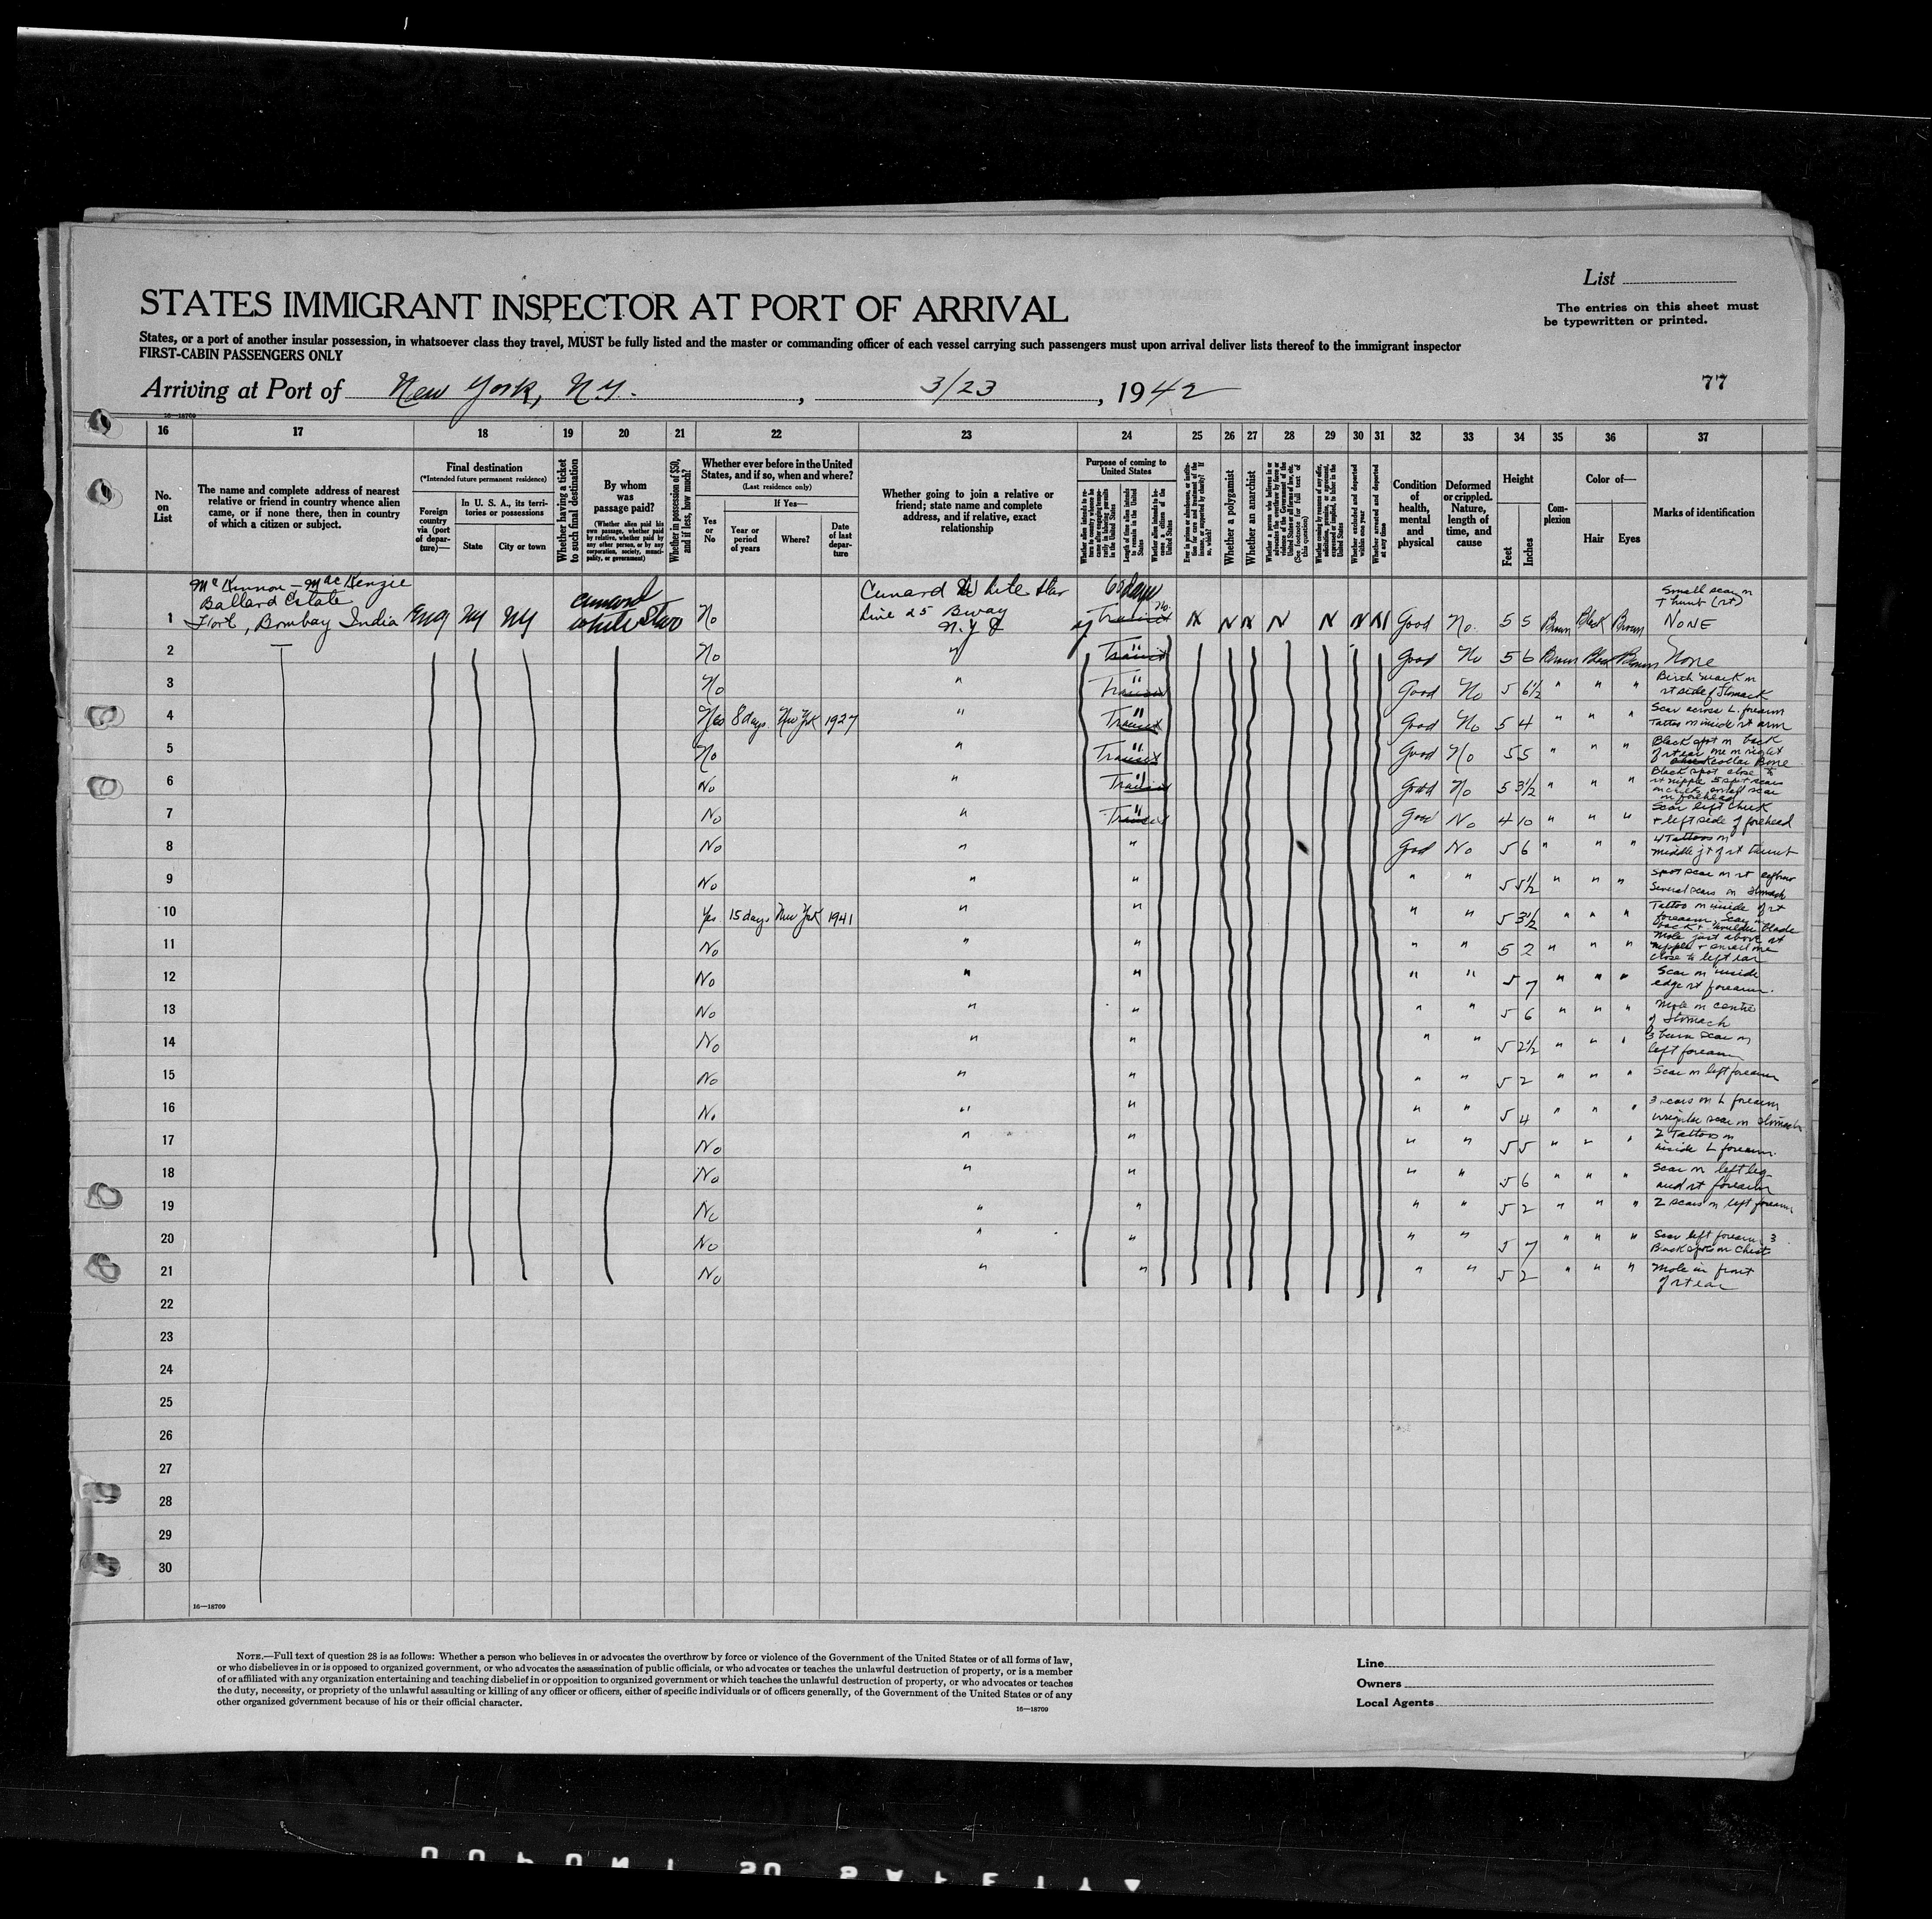 List
STATES IMMIGRANT INSPECTOR AT PORT OF ARRIVAL
The entries on this sheet must
be typewritten or printed.
States, or a port of another insular possession, in whatsoever class they travel, MUST be fully listed and the master or commanding officer of each vessel carrying such passengers must upon arrival deliver lists thereof to the immigrant inspector
FIRST-CABIN PASSENGERS ONLY
Arriving at Port of New York, N.Y. , 3/23 , 1942
77
16—18709
16 17 18 19 20 21 22 23 24 25 26 27 28 29 30 31 32 33 34 35 36 37
No. on List
The name and complete address of nearest
relative or friend in country whence alien
came, or if none there, then in country
of which a citizen or subject.
Final destination
(*Intended future permanent residence)
Foreign country via (port of departure)—
In U. S. A., its territories or possessions
State
City or town
Whether having a ticket to such final destination
By whom was passage paid?
(Whether alien paid his own passage, whether paid by relative, whether paid by any other person, or by any corporation, society, municipality, or government)
Whether in possession of $50, and if less, how much?
Whether ever before in the United States, and if so, when and where?
(Last residence only)
Yes or No
If Yes—
Year or period of years
Where?
Date of last departure
Whether going to join a relative or
friend; state name and complete
address, and if relative, exact
relationship
Purpose of coming to United States
Whether a polygamist
Whether an anarchist
Whether excluded and deported within one year
Whether arrested and deported at any time
Condition of health, mental and physical
Deformed or crippled. Nature, length of time, and cause
Height
Feet
Inches
Complexion
Color of—
Hair
Eyes
Marks of identification
McKinnon - MacKenzie
Ballard Estate
Fort, Bombay India
Cunard White Star
Cunard White Star
Line 25 Bway
N.Y.C
60 days
1 Eng NY NY No Transit No N N N N N N N Good No. 5 5 Brown Black Brown Small scar on Thumb (rt) NONE
2 No " Transit " Good No 5 6 Brown Black Brown None
3 No " Transit " Good No 5 6½ " " " Birth mark on rt side of Stomack
4 Yes 8 days New York 1927 " Transit " Good No 5 4 " " " Scar across L. forearm Tattoo on inside rt arm
5 No " Transit " Good No 5 5 " " " Black spot on back of rt ear, one on right collar Bone
6 No " Transit " Good No 5 3½ " " " Black spot close to rt nipple 5 spot scars small scar on forehead
7 No " Transit " Good No 4 10 " " " Scar left cheek + left side of forehead
8 No " " Good No 5 6 " " " 4 Tattoos on middle jt of rt thumb
9 No " " " " 5 5½ " " " spot scar on rt eyebrow Several scars on Stomach
10 Yes 15 days New York 1941 " " " " 5 3½ " " " Tattoo on inside of rt forearm, Scar on back + shoulder blade
11 No " " " " 5 2 " " " Mole just above rt nipple + small one close to left ear
12 No " " " " 5 7 " " " Scar on inside edge rt forearm.
13 No " " " " 5 6 " " " Mole on centre of Stomach
14 No " " " " 5 2½ " " " 3 burn scar on left forearm
15 No " " " " 5 2 " " " Scar on left forearm
16 No " " " " 5 4 " " " 3 scars on L forearm irregular scar on Stomach
17 No " " " " 5 5 " " " 2 Tattoos on inside L forearm.
18 No " " " " 5 6 " " " Scar on left leg and rt forearm
19 No " " " " 5 2 " " " 2 scars on left forearm
20 No " " " " 5 7 " " " Scar left forearm 3 Black spots on chest
21 No " " " " 5 2 " " " Mole in front of rt ear
22
23
24
25
26
27
28
29
30
16—18709
NOTE.—Full text of question 28 is as follows: Whether a person who believes in or advocates the overthrow by force or violence of the Government of the United States or of all forms of law,
or who disbelieves in or is opposed to organized government, or who advocates the assassination of public officials, or who advocates or teaches the unlawful destruction of property, or is a member
of or affiliated with any organization entertaining and teaching disbelief in or opposition to organized government or which teaches the unlawful destruction of property, or who advocates or teaches
the duty, necessity, or propriety of the unlawful assaulting or killing of any officer or officers, either of specific individuals or of officers generally, of the Government of the United States or of any
other organized government because of his or their official character.
16—18709
Line
Owners
Local Agents